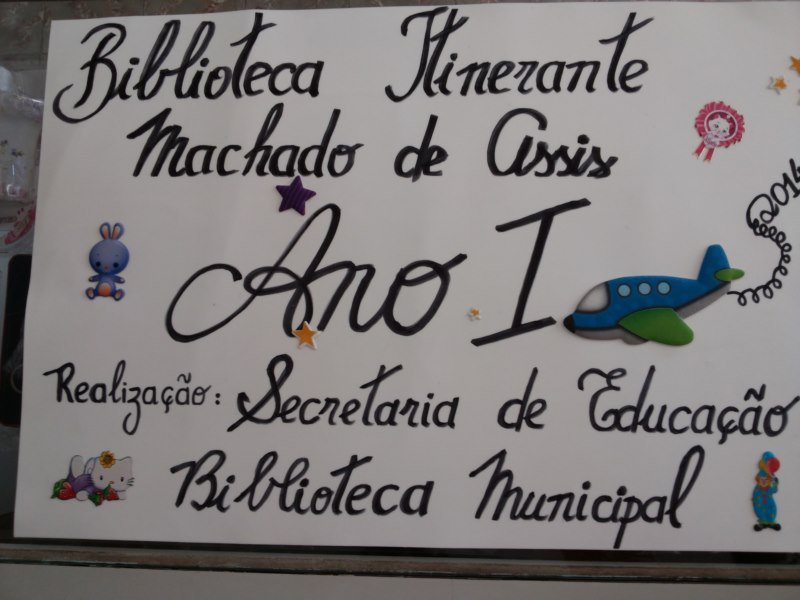 Biblioteca Itinerante
Machado de Assis
2014
Ano I
Realização: Secretaria de Educação
Biblioteca Municipal